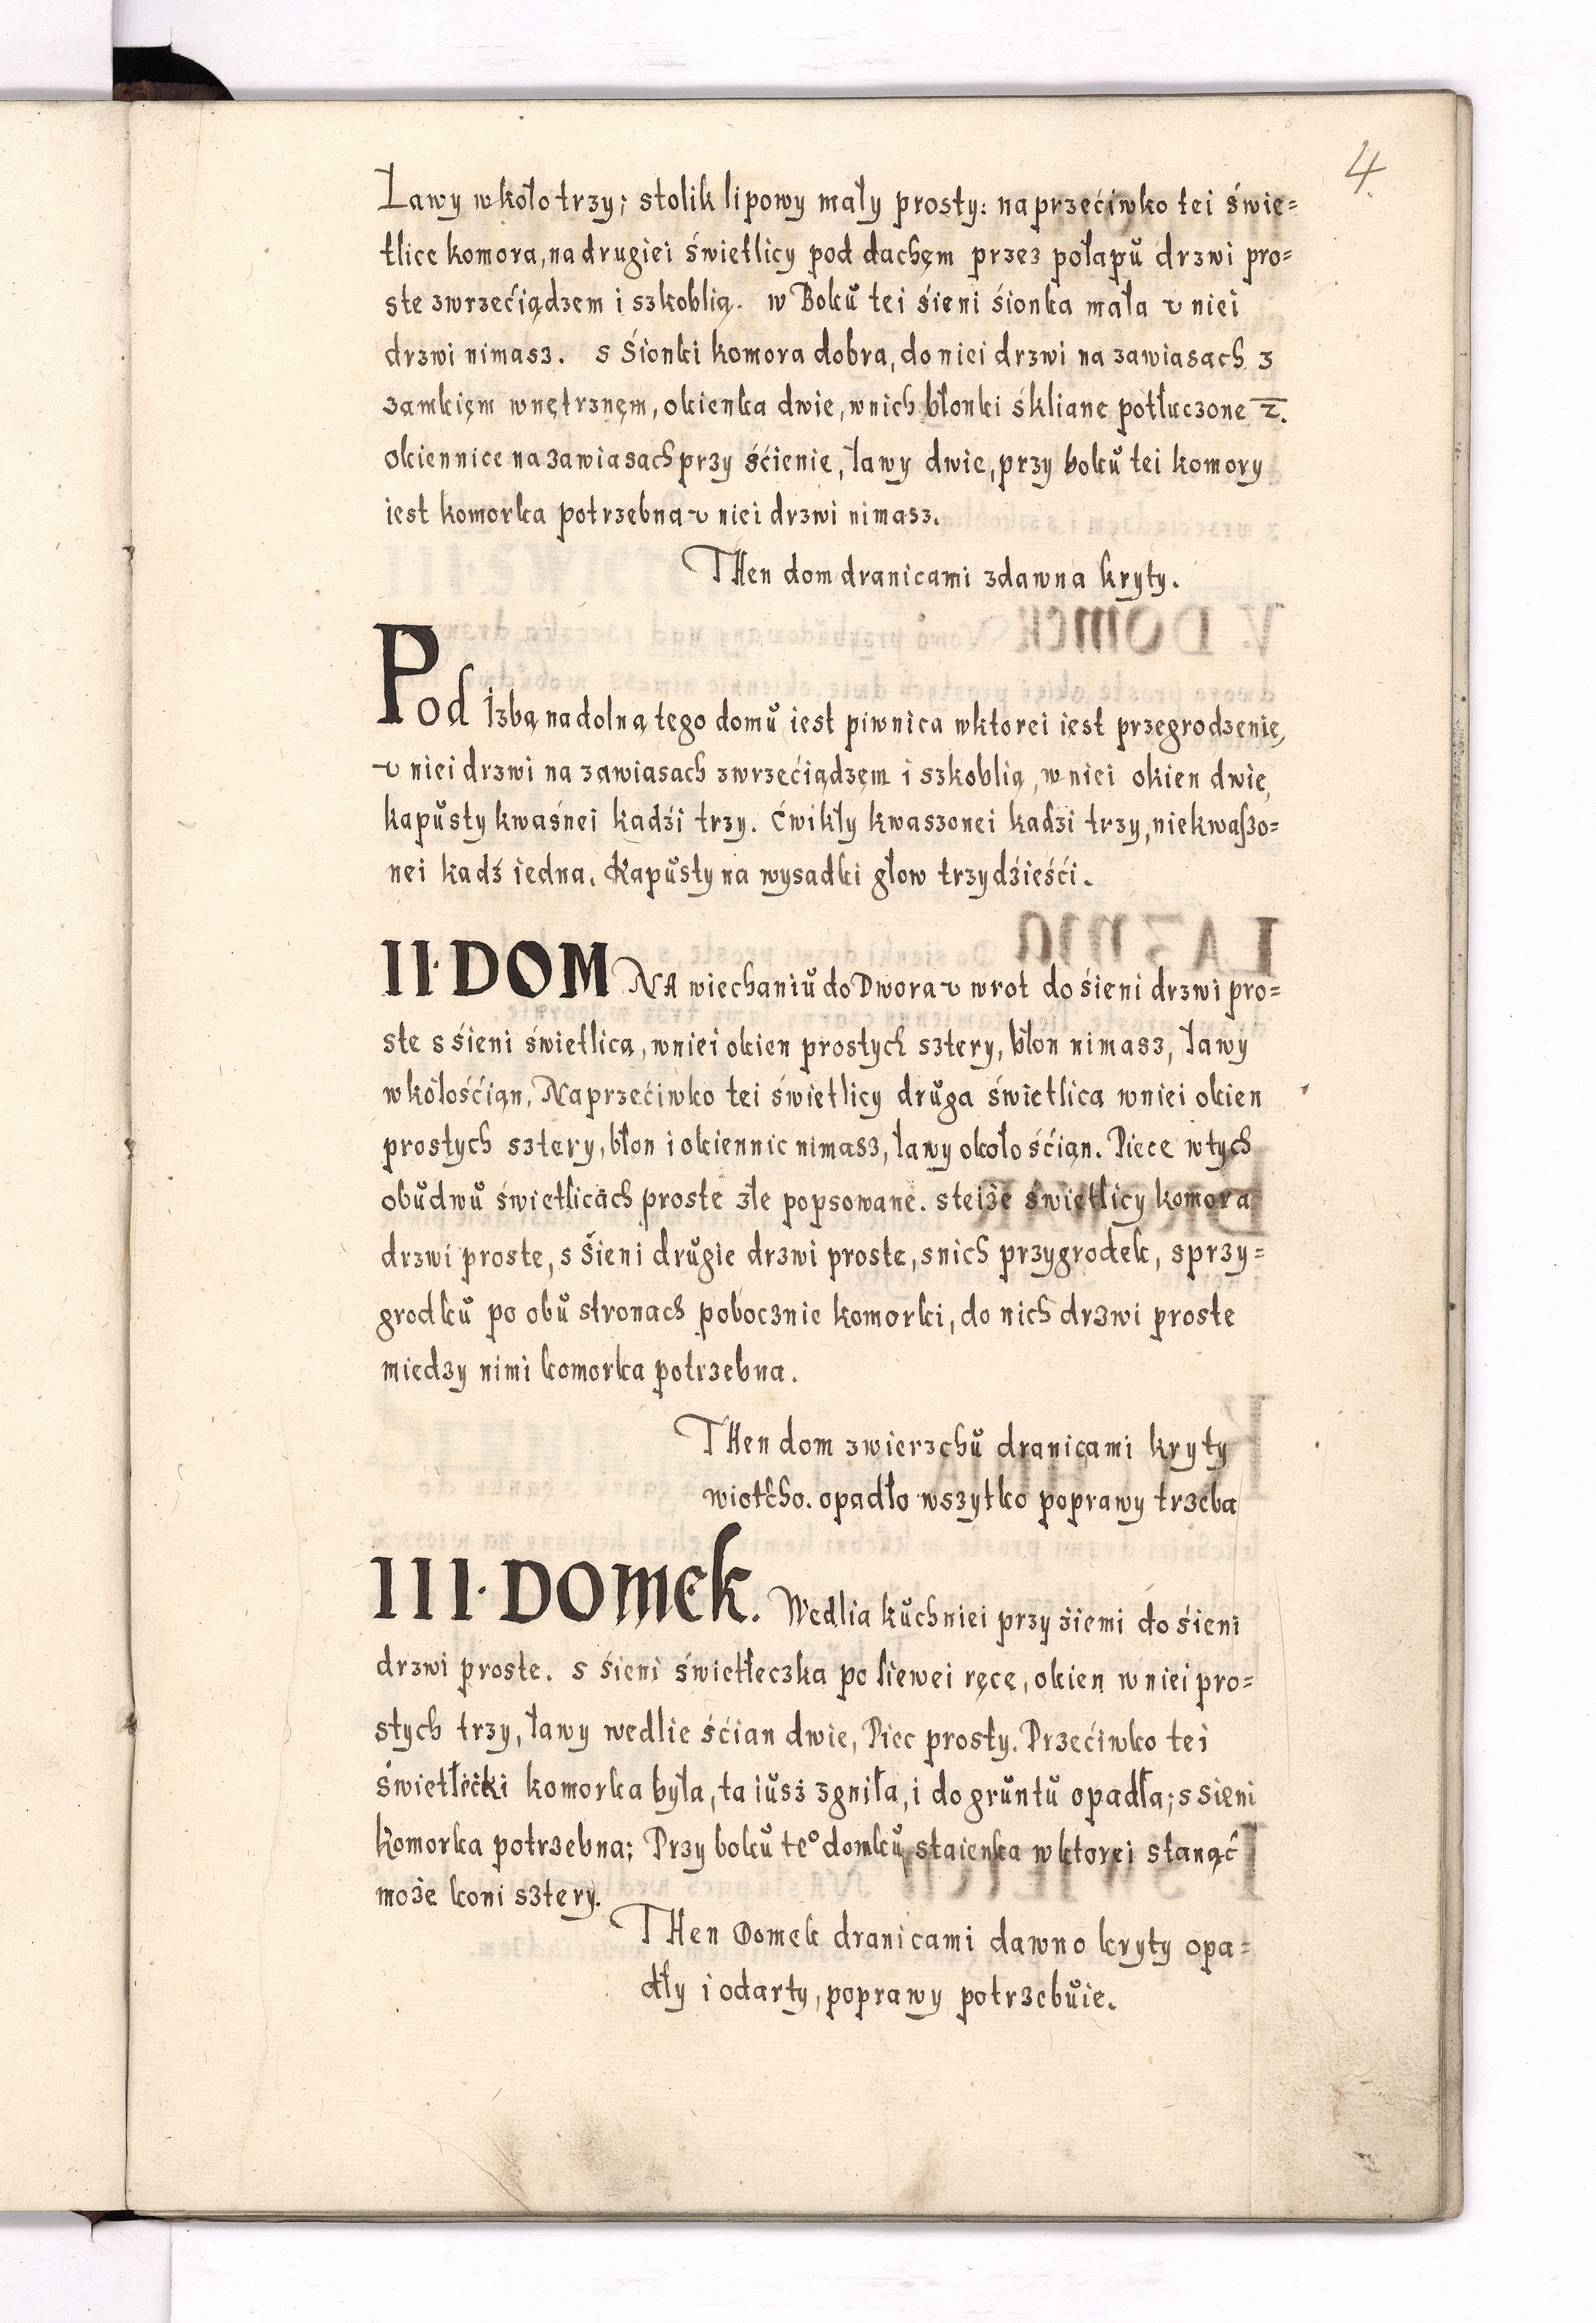 4
Ławy wkoło trzy; stolik lipowy mały prosty: na przećiwko tei świe=
tlice komora, na drugiei świetlicy pod dachęm przez połapů drzwi pro=
ste zwrzećiądzem i szkoblią. w Boků tei śieni śionka mała v niei
drzwi nimasz. s Śionki komora dobra, do niei drzwi na zawiasach z
zamkięm wnętrznęm, okienka dwie, wnich błonki śkliane potłuczone z.
okiennice na zawiasach przy śćienie, ławy dwie, przy boků tei komory
iest komorka potrzebna v niei drzwi nimasz.
THen dom dranicami zdawna kryty.
Pod Izbą na dolną tego domů iest piwnica wktorei iest przegrodzenie,
v niei drzwi na zawiasach zwrzećiądzęm i szkoblią, w niei okien dwie,
kapůsty kwaśnei kadźi trzy. Ćwikły kwaszonei kadzi trzy, niekwaßo=
nei kadź iedna. Kapůsty na wysadki głow trzydźieśći.
II·DOM NA wiechaniů do Dwora v wrot do śieni drzwi pro=
ste s śieni świetlica, wniei okien prostych sztery, błon nimasz, ławy
wkołośćian, Naprzećiwko tei świetlicy drůga świetlica wniei okien
prostych sztery, błon i okiennic nimasz, ławy około śćian. Piece wtych
obůdwů świetlicach proste złe popsowane. steiże świetlicy komora
drzwi proste, s śieni drůgie drzwi proste, snich przygrodek, sprzy=
grodků po obů stronach pobocznie komorki, do nich drzwi proste
miedzy nimi komorka potrzebna.
THen dom zwierzchů dranicami kryty
wiotcho. opadło wszytko poprawy trzeba
III·DOmek. Wedlia kůchniei przy źiemi do śieni
drzwi proste. s śieni świetłeczka po liewei ręce, okien w niei pro=
stych trzy, ławy wedlie śćian dwie, Piec prosty. Przećiwko tei
świetłečki komorka była, ta iůsż zgniła, i do grůntů opadła; s sieni
komorka potrzebna; Przy boků te° domků staienka wktorei stanąć
może koni sztery.
THen Domek dranicami dawno kryty opa=
dły i odarty, poprawy potrzebůie.